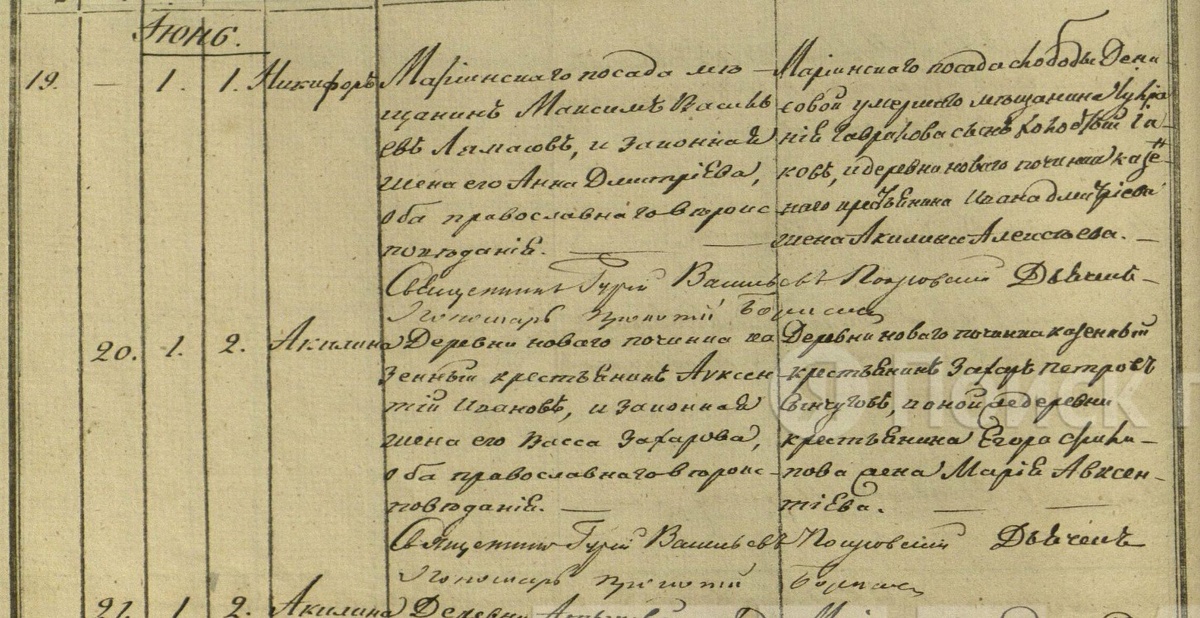 Іюнь.
19. — 1. 1. Никифоръ
Маріинскаго посада мѣ-
щанинъ Максимъ Василь
евъ Лямасовъ, и законная
жена его Анна Дмитріева,
оба православнаго вѣроис-
повѣданія. —
Маріинскаго посада слободы Дени
совой умершаго мѣщанина
сынъ Холостый Іа-
ковъ, и деревни новаго починка казен
наго крестьянина Ивана Дмитріева
жена Акилина Алексѣева. —
Священникъ Гурій Васильевъ Покровскій Дьячекъ
Пономарь
20. 1. 2. Акилина
Деревни новаго починка ка
зенный крестьянинъ Авксен
тій Ивановъ, и законная
жена его Васса Захарова,
оба православнаго вѣроис-
повѣданія. —
Деревни новаго починка казенный
крестьянинъ Захаръ Петровъ
и оной же деревни
крестьянина Егора Фили-
пова жена Марія Авксен-
тіева. — —
Священникъ Гурій Васильевъ Покровскій Дьячекъ
Пономарь
21. 1. 2. Акилина Деревни